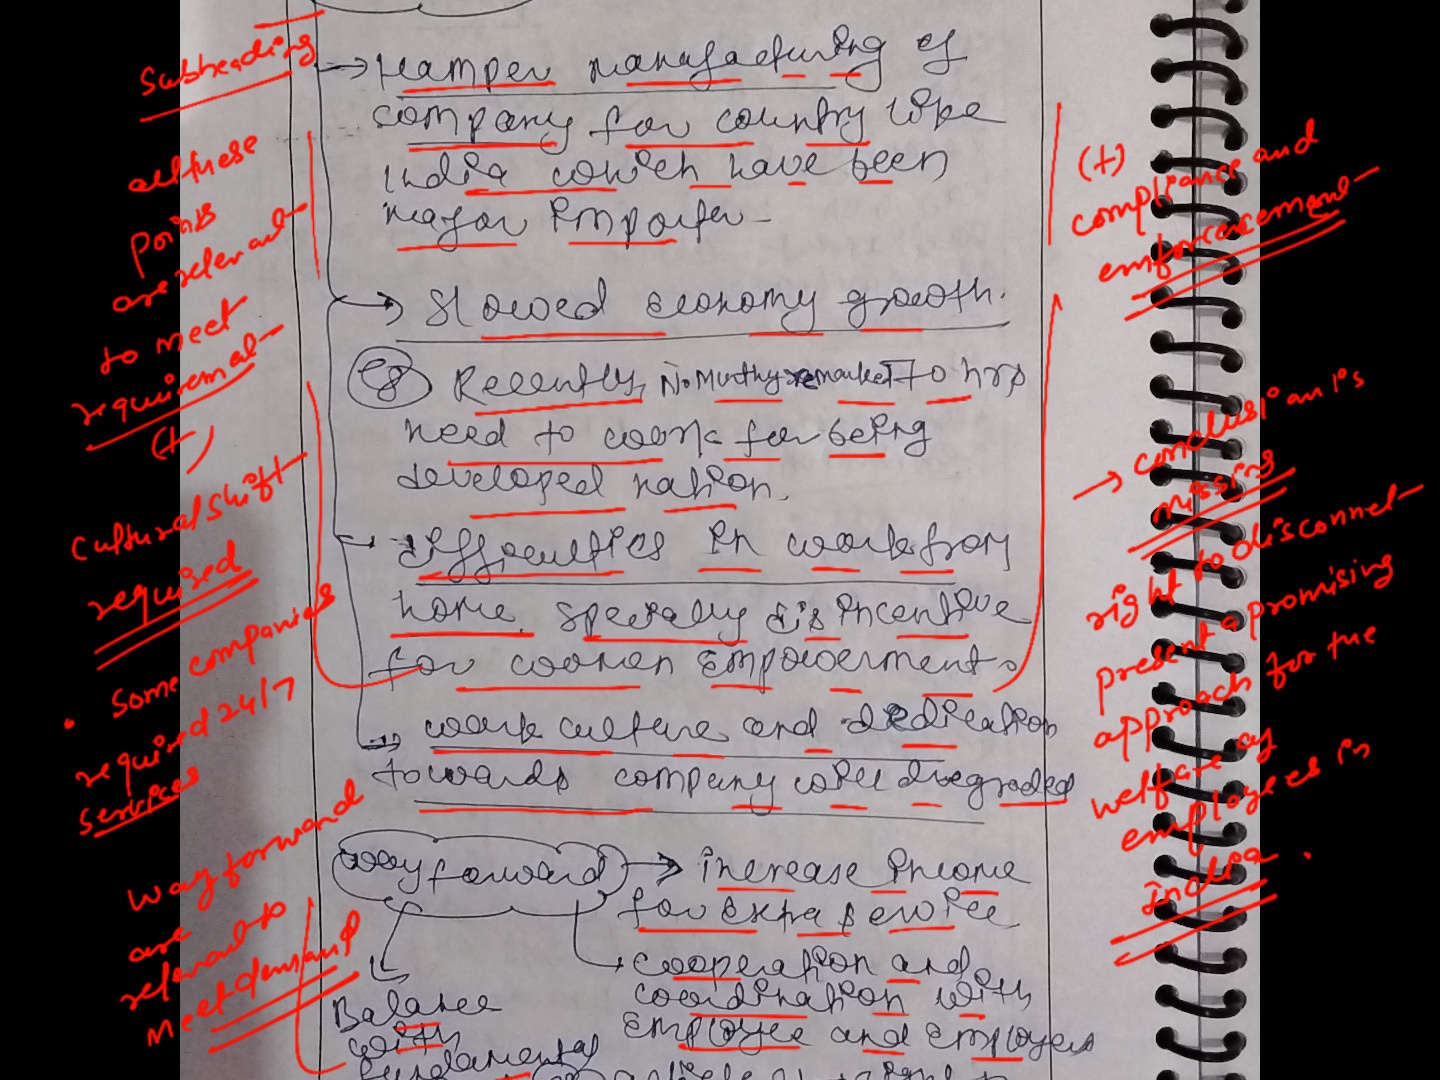 → Hamper manufacturing of
company for country like
India which have been
major importer -
→ Slowed economy growth.
eg Recently, N. Murthy remarket 70 hrs
need to work for being
developed nation.
→ difficulties in work from
home. specially disincentive
for women empowerment.
→ work culture and dedication
towards company will degraded
way forward → increase income
for extra service
cooperation and
coordination with
employee and employer
Balance
with
fundamental
Subheading
all these
points
are relevant
to meet
requirement
(+)
Cultural shift
required
• Some companies
required 24/7
services
way forward
are
relevant to
meet demand
(+)
compliance and
enforcement
→ conclusion is
missing
right to disconnect
present a promising
approach for the
welfare of
employees in
India.